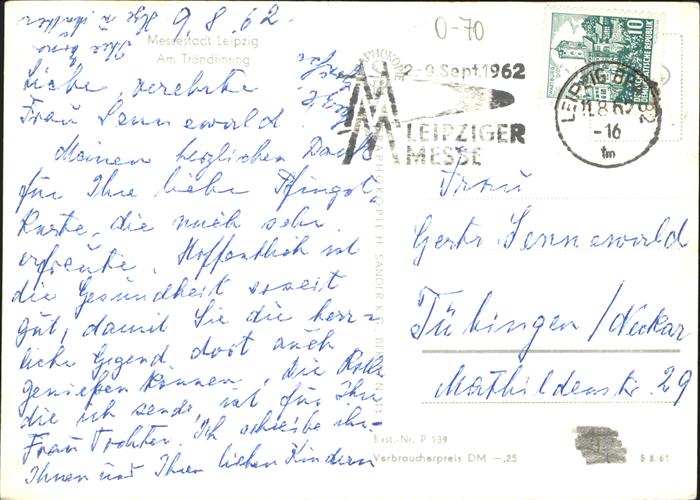 9.8.62
0-70
Messestadt Leipzig
Am Tröndlinring
Liebe, verehrte
Frau Sennewald.
Meinen herzlichen Dank
für Ihre liebe Pfingst-
Karte, die mich sehr
erfreute. Hoffentlich ist
die Gesundheit soweit
gut, damit Sie die herr-
liche Gegend dort auch
genießen können. Die Karte
die ich sende, ist für Ihre
Frau Tochter. Ich schreibe
Ihnen und Ihren lieben Kindern
2-9 Sept. 1962
LEIPZIGER
MESSE
LEIPZIG
-16
tm
10
Frau
Gertr. Sennewald
Tübingen/Neckar
Mathildenstr. 29
Best.-Nr. P 139
Verbraucherpreis DM —,25
B 8/61